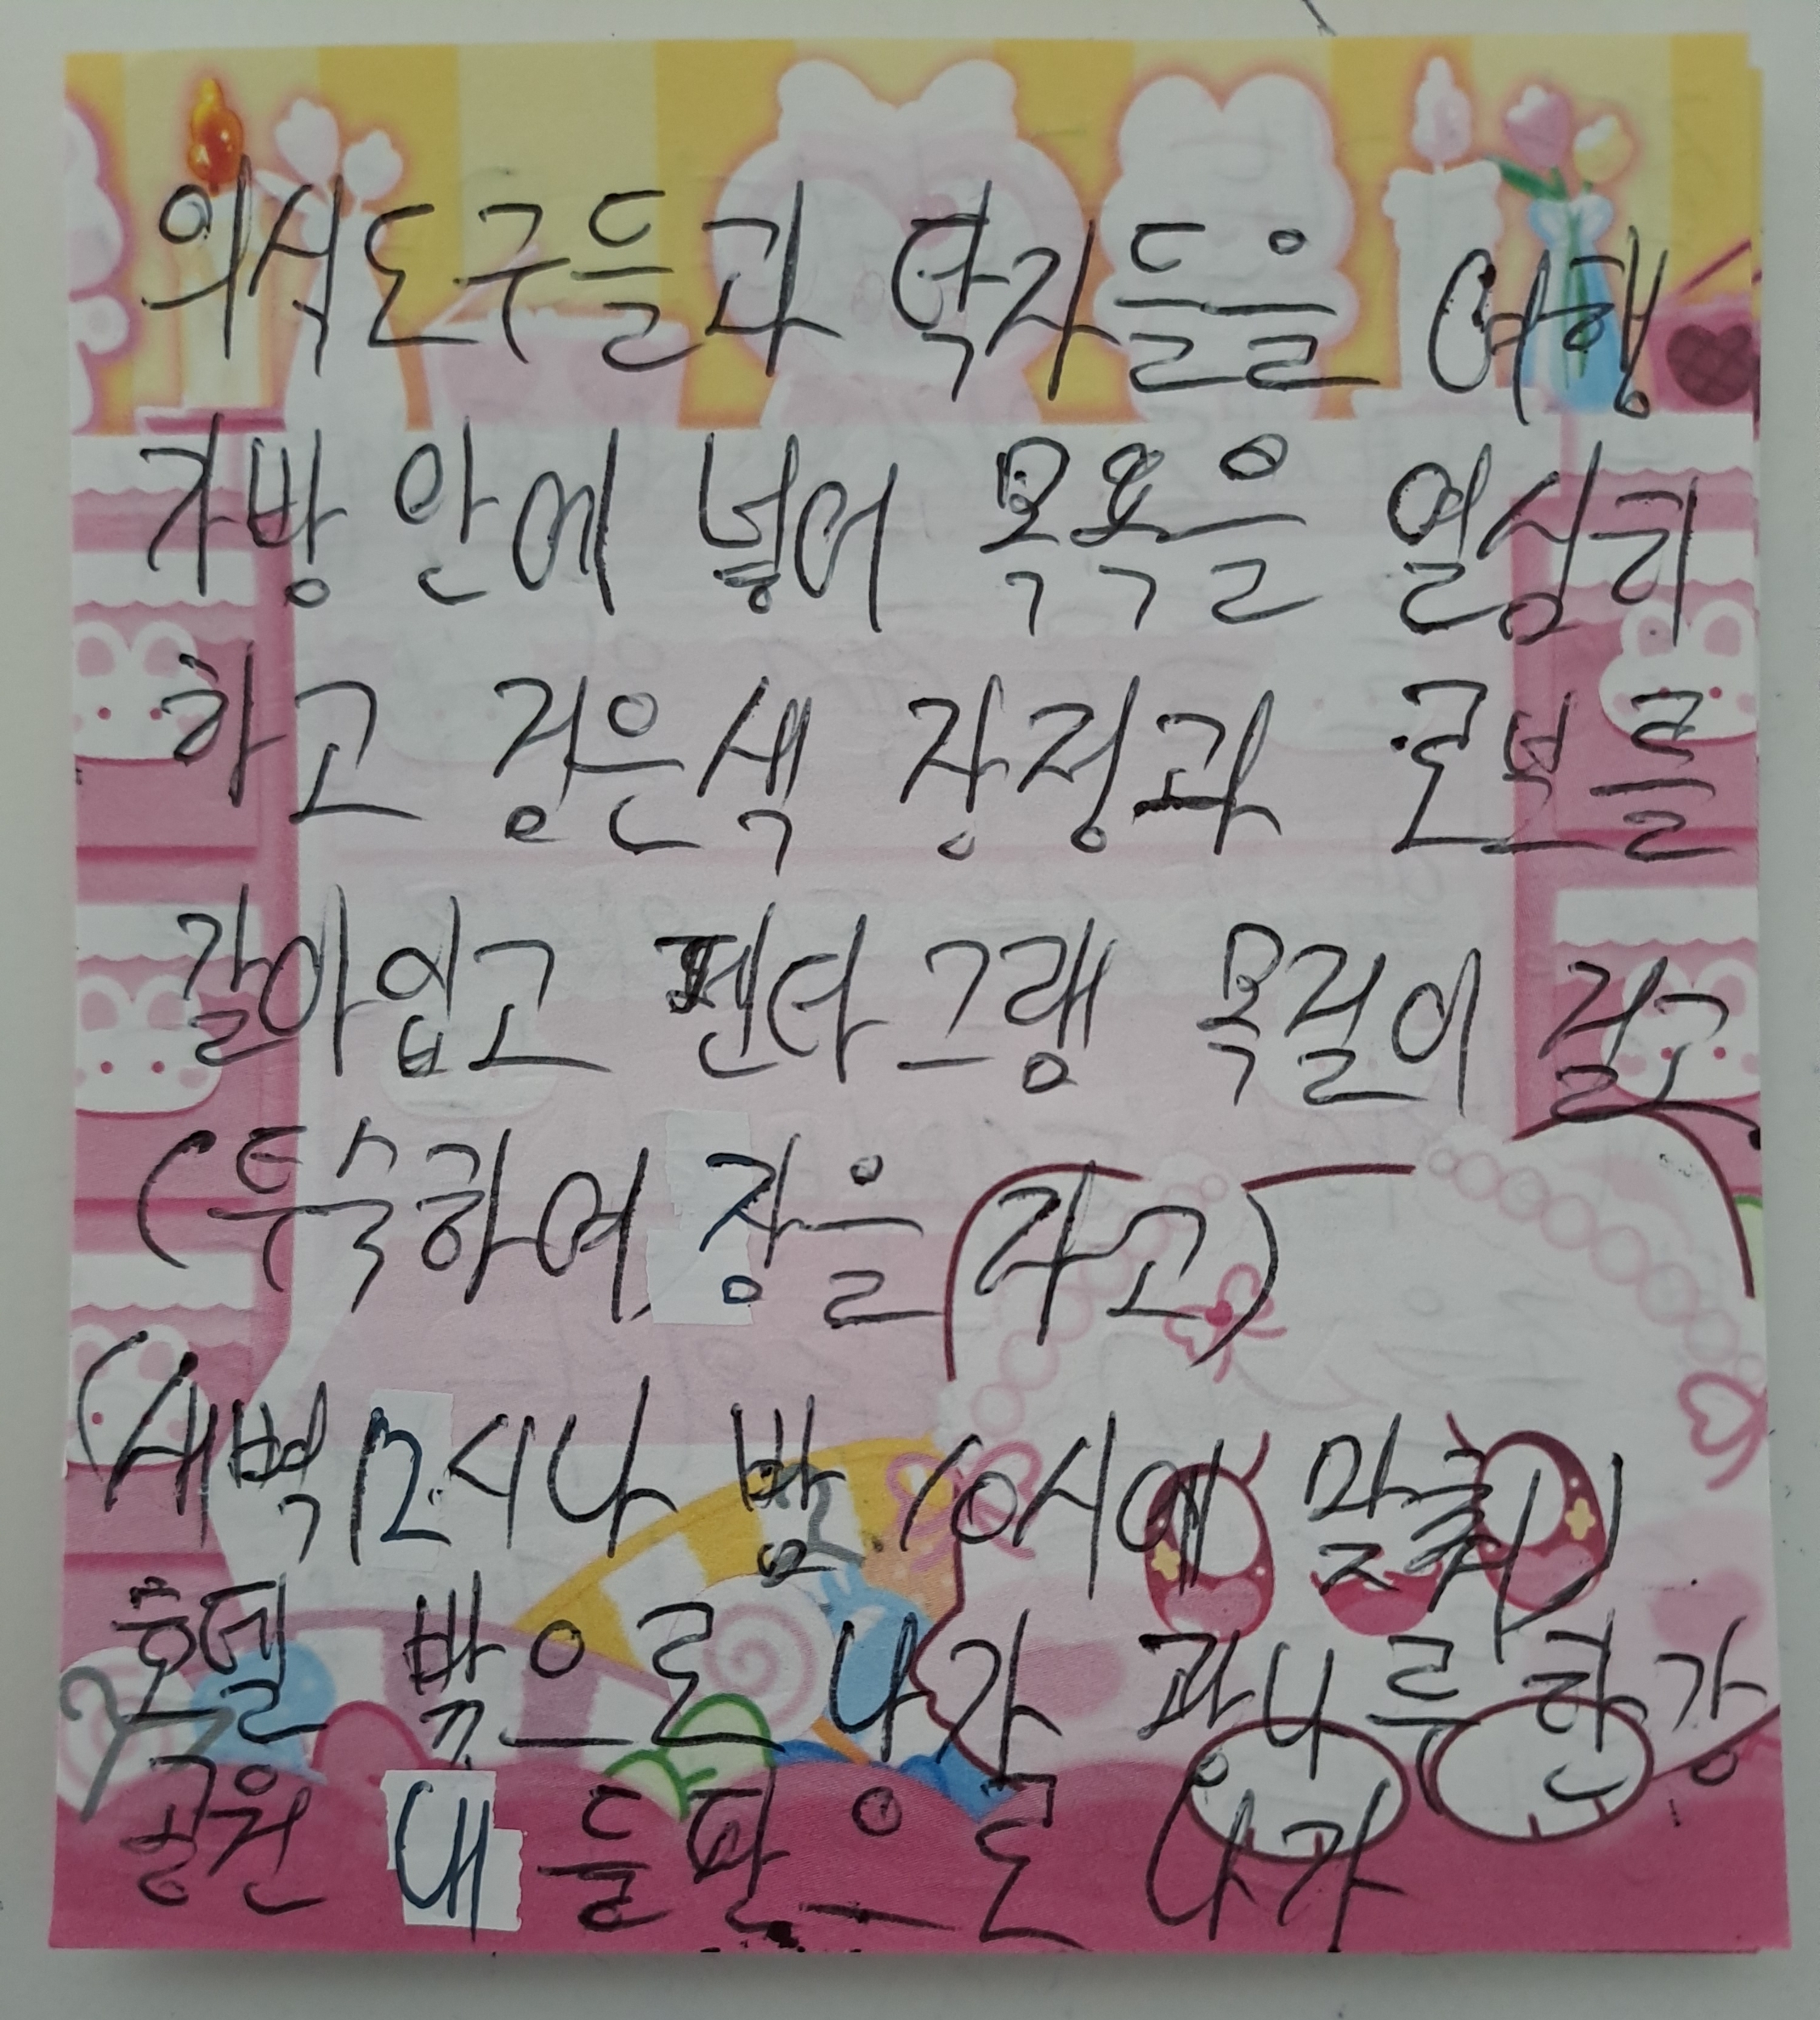 의식도구들과 탁자들을 여행
가방 안에 넣어 목욕을 열심히
하고 검은색 장정과 로브를
갈아입고 펜타그램 목걸이 걸고
(투숙하여 잠을 자고)
(새벽 12시나 밤 10시에 맞춰)
호텔 밖으로 나가
공원 내 들판으로 나가